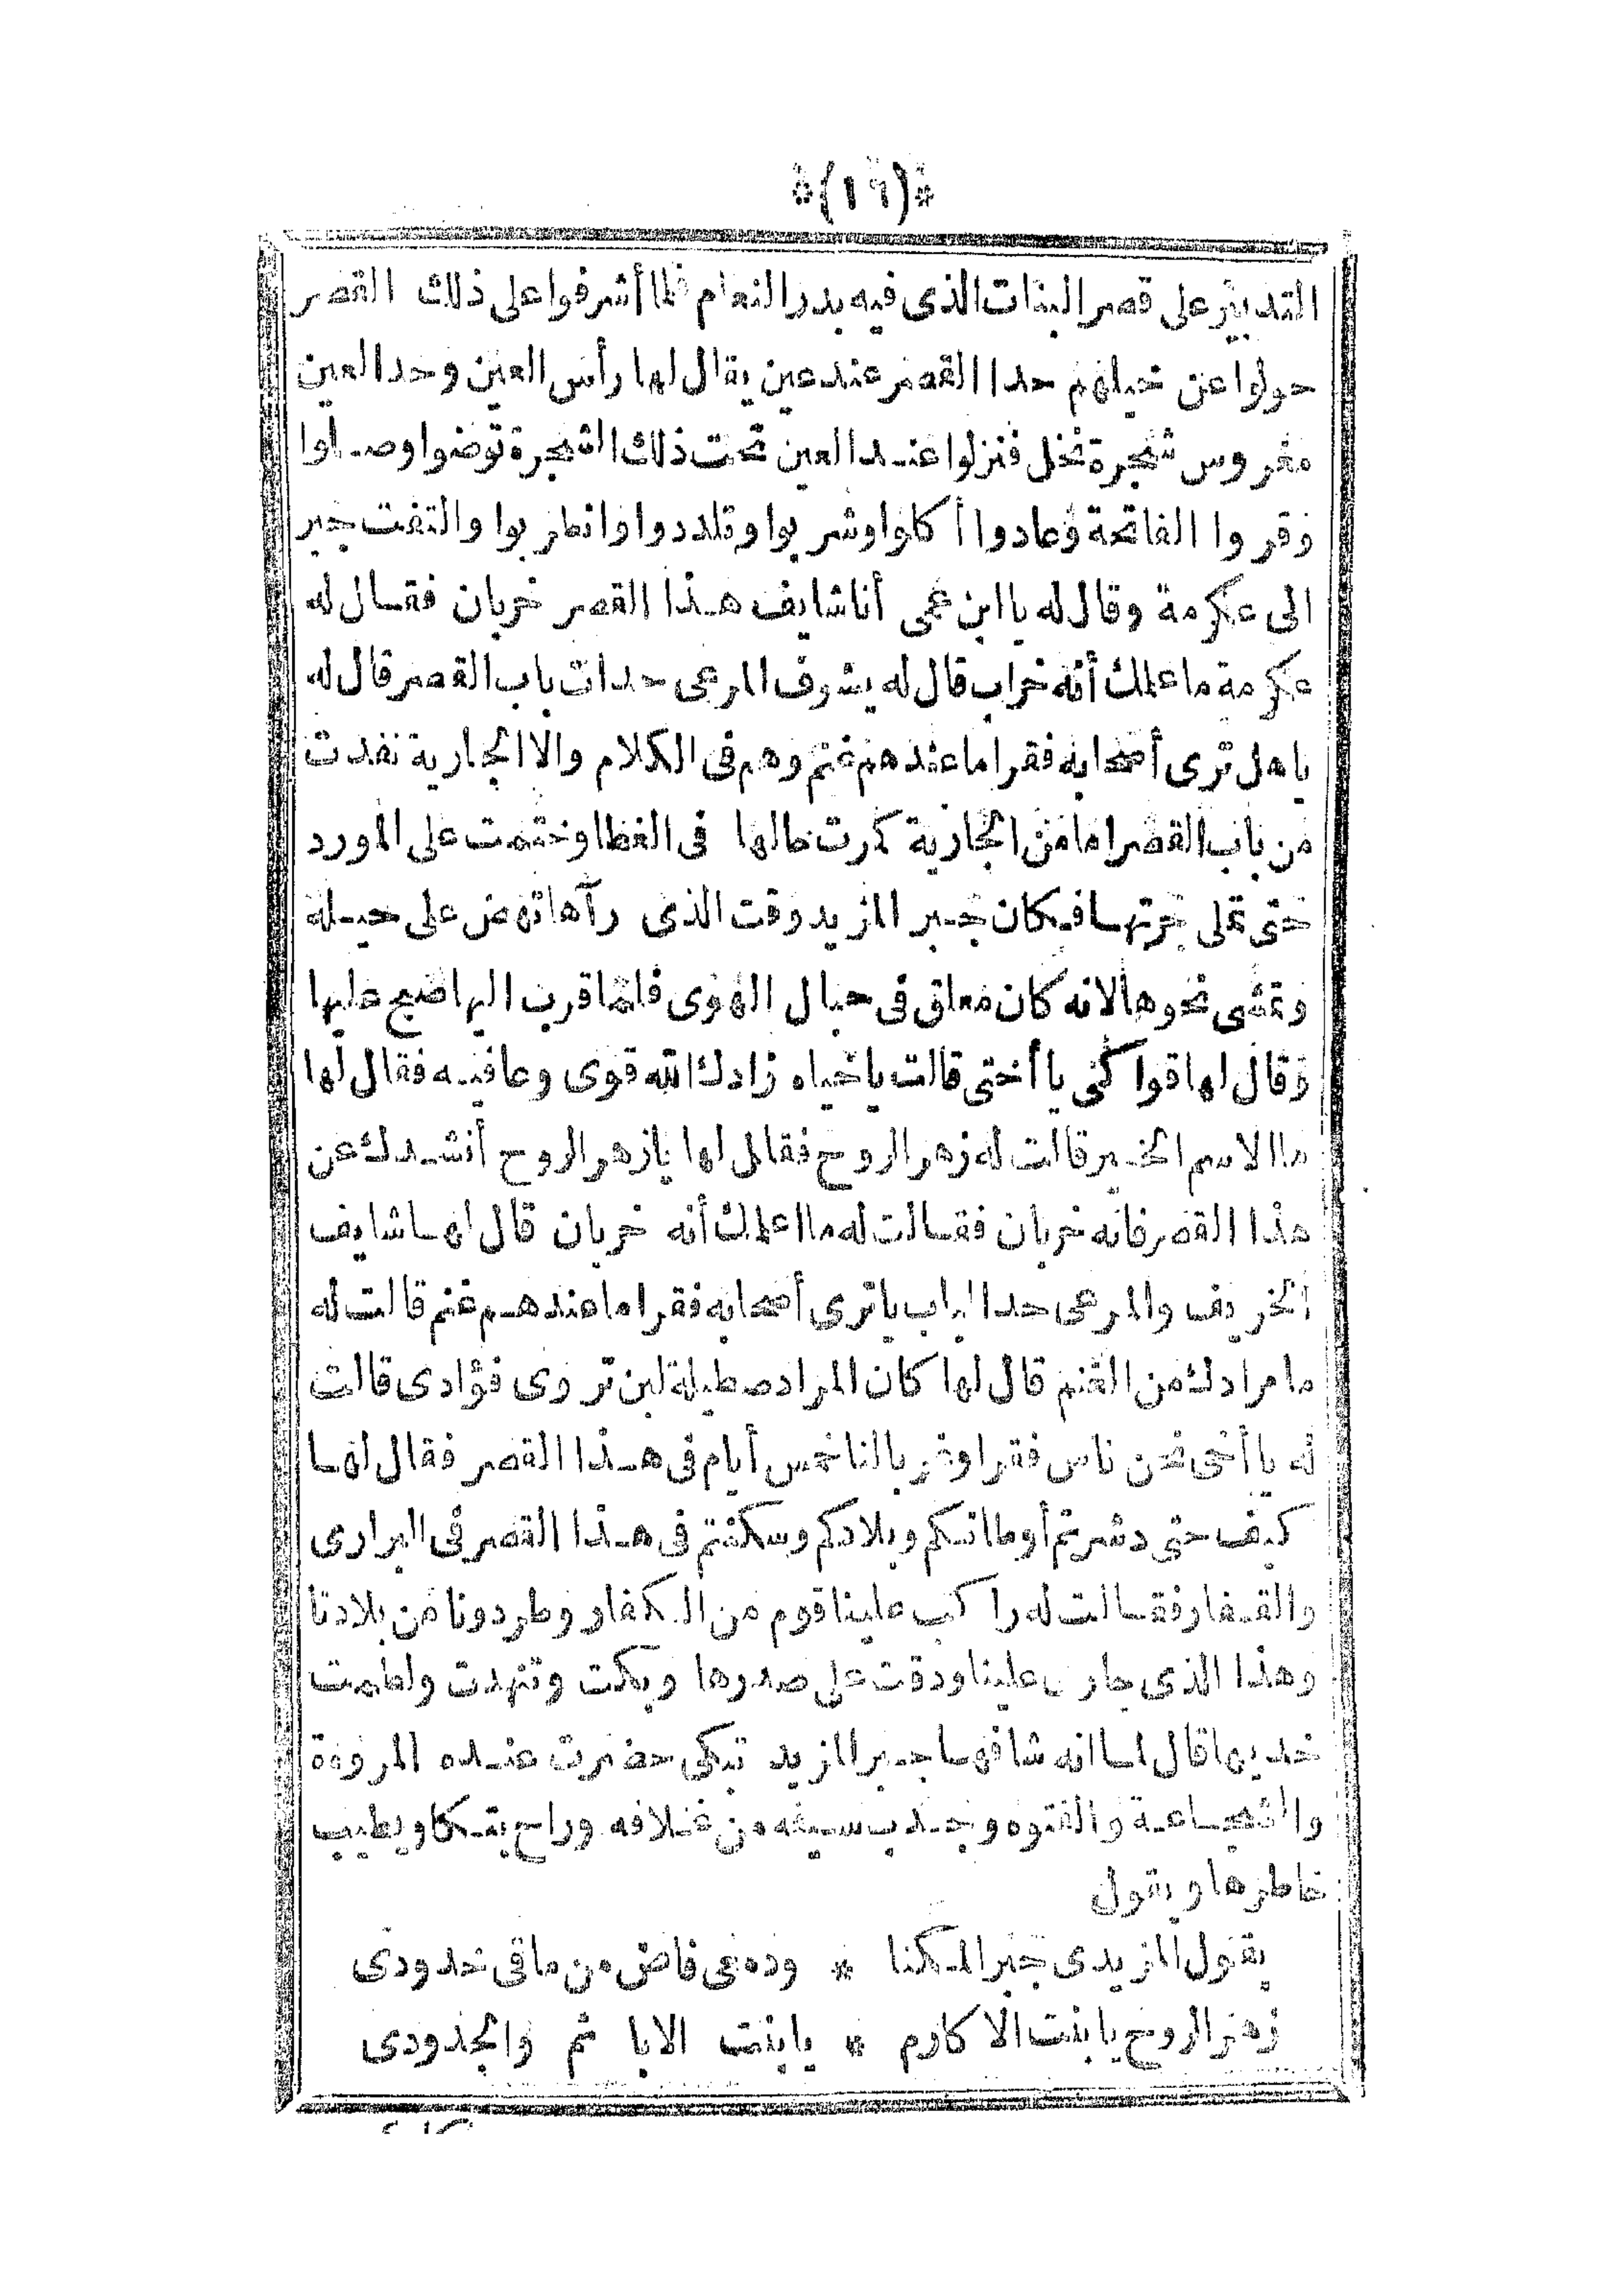 *(١٦)*
التدبير على قصر البنات الذى فيه بدر النعام فلما أشرفوا على ذلك القصر
حولوا عن خيلهم حدا القصر عند عين يقال لها رأس العين وحدا العين
مغروس شجرة نخل فنزلوا عند العين تحت ذلك الشجرة توضوا وصلوا
وقروا الفاتحة وعادوا أكلوا وشربوا وتلددوا وانطربوا والتفت جبر
الى عكرمة وقال له يا ابن عمى أنا شايف هذا القصر خربان فقال له
عكرمة ما علمك أنه خراب قال له يشوف المرعى حدات باب القصر قال له
يا هل ترى أصحابه فقرا ما عندهم غنم وهم فى الكلام والا الجارية نفدت
من باب القصر اما من الجارية كرت حالها فى الغطا وختمت على المورد
حتى تملى جرتها فكان جبر المزيد وقت الذى رآها نهض على حيله
وتمشى نحوها لانه كان معلق فى حبال الهوى فلما قرب اليها ضبح عليها
وقال لها قوا كنى يا أختى قالت يا خياه زادك الله قوى وعافيه فقال لها
ما الاسم الخير قالت له زهر الروح فقال لها يا زهر الروح أنشدك عن
هذا القصر فانه خربان فقالت له ما اعلمك أنه خربان قال لها شايف
الخريف والمرعى حدا الباب يا ترى أصحابه فقرا ما عندهم غنم قالت له
ما مرادك من الغنم قال لها كان المراد صطيلة لبن تروى فؤادى قالت
له يا أخى نحن ناس فقرا وغربا لنا خمس أيام فى هذا القصر فقال لها
كيف حتى دشرتم أوطانكم وبلادكم وسكنتم فى هذا القصر فى البرارى
والقفار فقالت له راكب علينا قوم من الكفار وطردونا من بلادنا
وهذا الذى جارى علينا ودقت على صدرها وبكت وتنهدت ولطمت
خديها قال لما انه شافها جبر المزيد تبكى حضرت عنده المروءة
والشجاعة والفتوه وجدب سيفه من غلافه وراح يتكا ويطيب
خاطرها ويقول
يقول المزيدى جبر المكنا * ودمعى فاض من ماقى خدودى
زهر الروح يا بنت الاكارم * يا بنت الابا ثم والجدودى